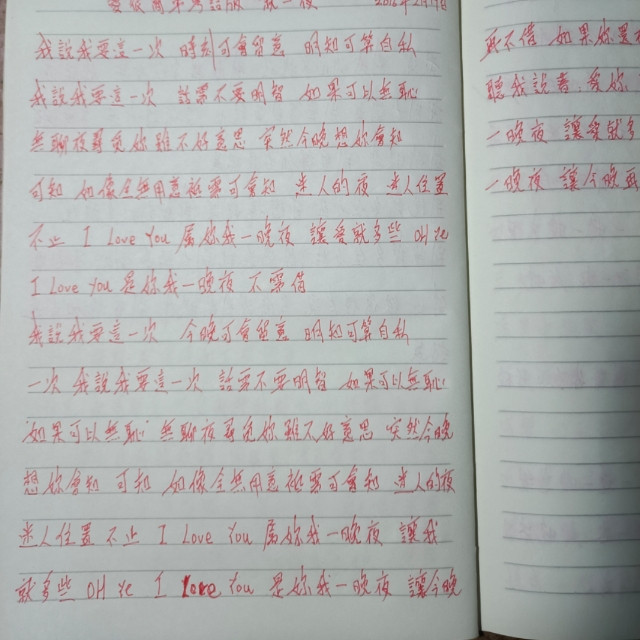 我說我要這一次 時刻可會留意 明知可算自私
我說我要這一次 話票不要明智 如果可以無恥
無聊夜尋覓你雖不好意思 突然今晚想你會知
可知 如像全無用意祗要可會知 迷人的夜 迷人位置
不止 I Love You 屬你我一晚夜 讓愛就多些 OH Ye
I Love You 是你我一晚夜 不需借
我說我要這一次 今晚可會留意 明知可算自私
一次 我說我要這一次 話要不要明智 如果可以無恥
如果可以無恥 無聊夜尋覓你雖不好意思 突然今晚
想你會知 可知 如像全無用意祗要可會知 迷人的夜
迷人位置 不止 I Love You 屬你我一晚夜 讓我
就多些 OH Ye I Love You 是你我一晚夜 讓今晚
死不借 如果你是
聽我說書 愛你
一晚夜 讓愛就多
一晚夜 讓今晚再